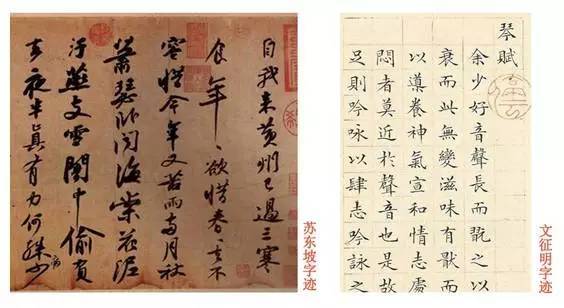 自我来黄州已過三寒
食年〻欲惜春〻去不
容惜今年又苦雨兩月秋
蕭瑟卧聞海棠花泥
汙燕支雪闇中偷負
去夜半真有力何殊少
病
苏东坡字迹
琴賦
余少好音聲長而翫之以
衰而此無變滋味有猒而
以導養神氣宣和情志處
悶者莫近於聲音也是故
足則吟詠以肆志吟詠之
文征明字迹